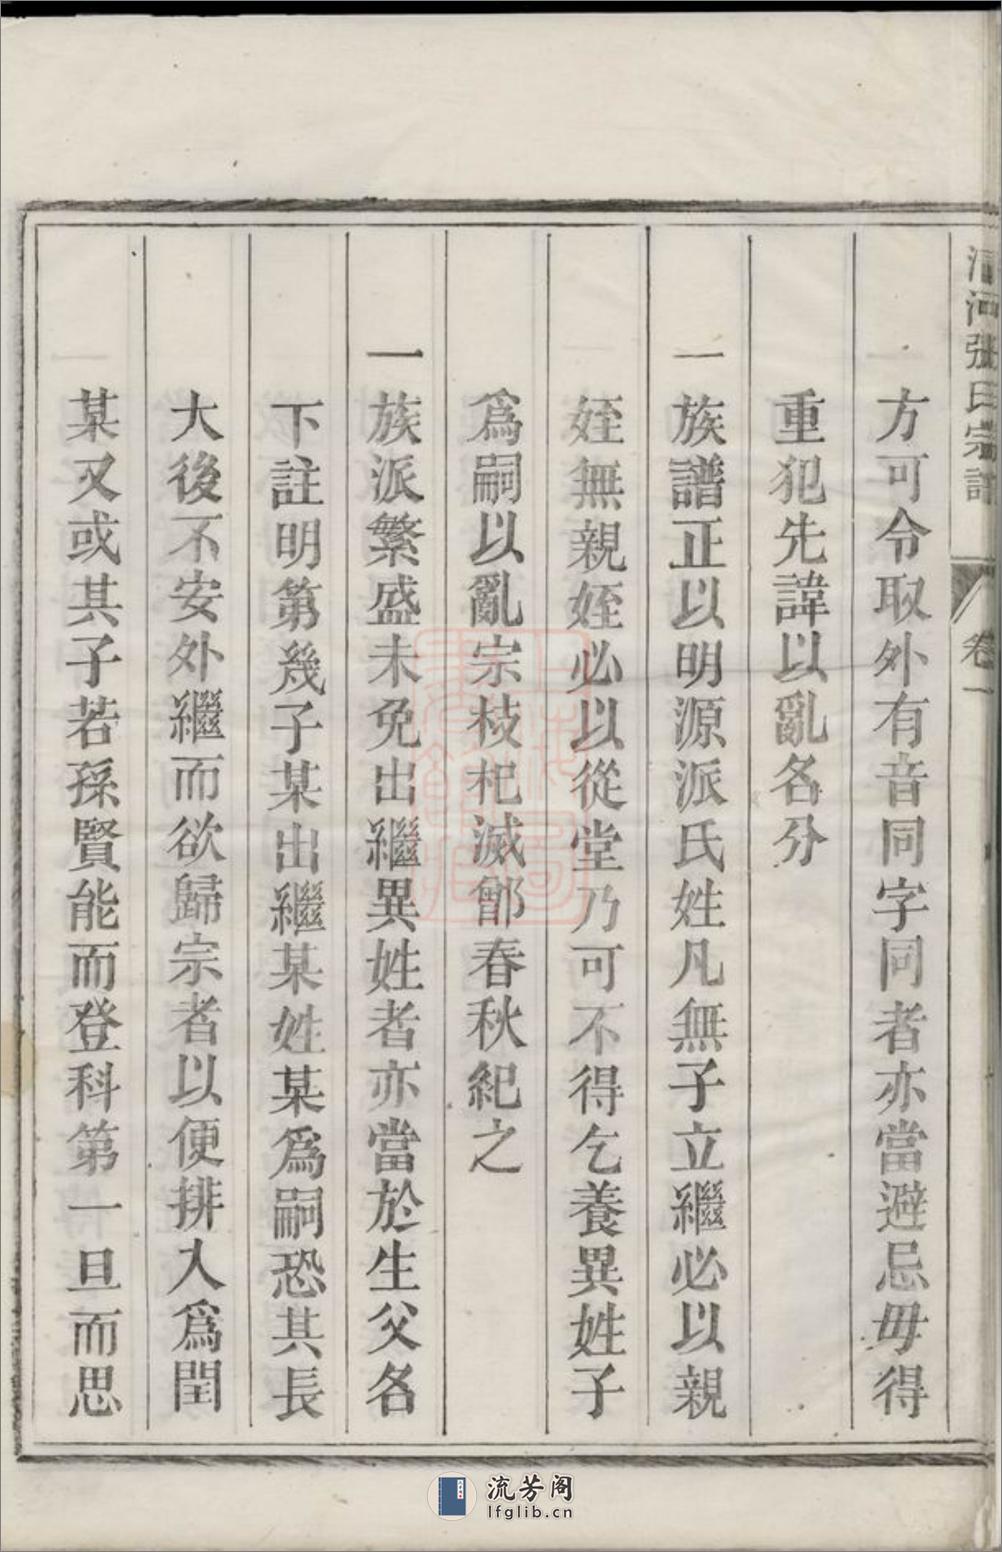 清河張氏宗譜
卷一
方可令取外有音同字同者亦當避忌毋得
重犯先諱以亂名分
一族譜正以明源派氏姓凡無子立繼必以親
姪無親姪必以從堂乃可不得乞養異姓子
爲嗣以亂宗枝杞滅鄫春秋紀之
一族派繁盛未免出繼異姓者亦當於生父名
下註明第幾子某出繼某姓某爲嗣恐其長
大後不安外繼而欲歸宗者以便排入爲閏
某又或其子若孫賢能而登科第一旦而思
流芳阁
lfglib.cn